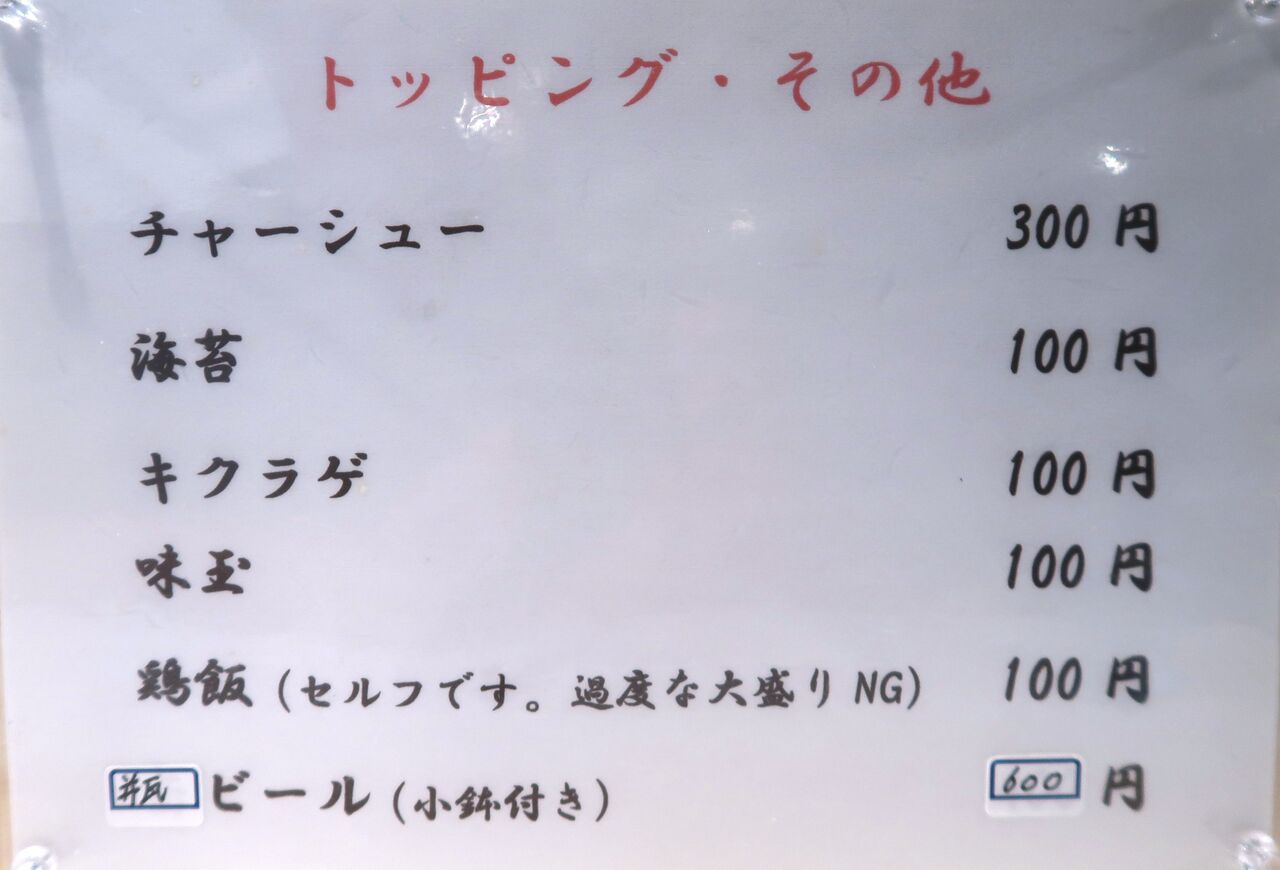 トッピング・その他
チャーシュー 300 円
海苔 100 円
キクラゲ 100 円
味玉 100 円
鶏飯 (セルフです。過度な大盛り NG) 100 円
瓶 ビール (小鉢付き) 600 円